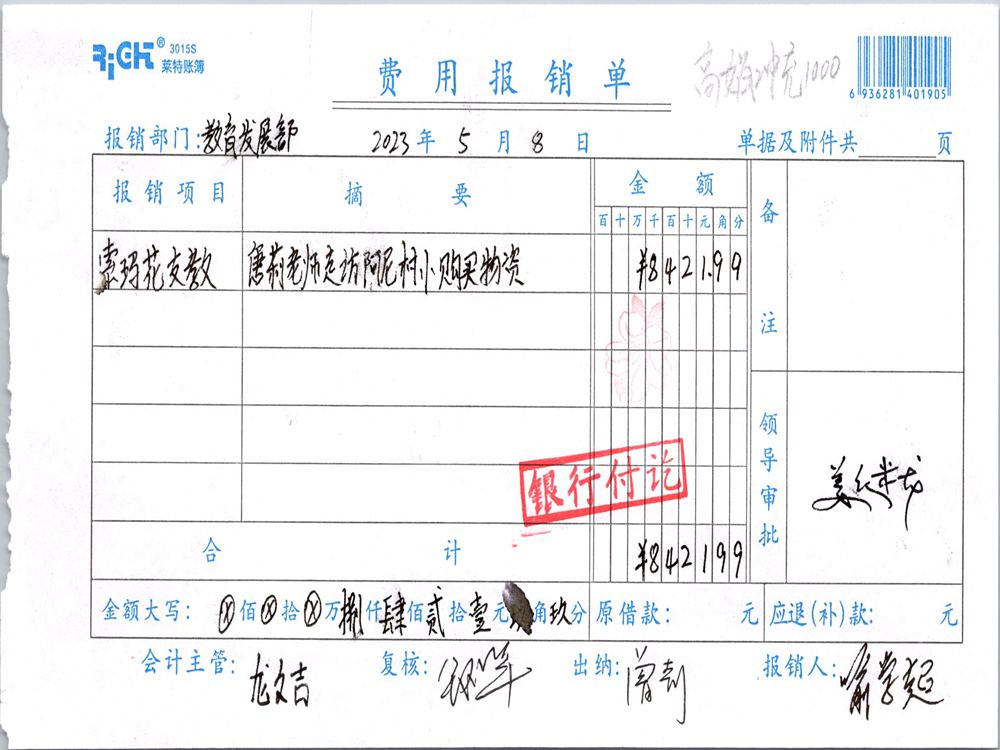 RiGHT® 3015S
莱特账簿
费用报销单
6 936281 401905
报销部门:教育发展部 2023年5月8日 单据及附件共 页
报销项目 摘要 金额 备注
百十万千百十元角分
索玛花支教 唐莉老师走访阿尼村小购买物资 ¥8421.99
銀行付讫
领导审批
合计 ¥842199
金额大写: ⊗佰⊗拾⊗万捌仟肆佰贰拾壹元 角玖分 原借款: 元 应退(补)款: 元
会计主管:龙文吉 复核: 出纳: 报销人:喻学超